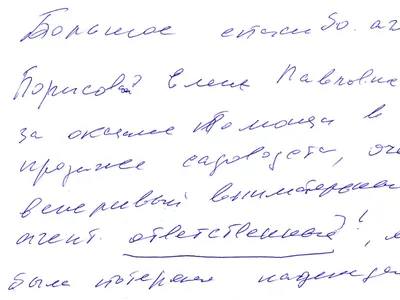 Большое спасибо. аг
Борисовой Елене Павловне
за оказание помощи в
продаже садоводства, оч
вежливый внимательный
агент. ответственный!,
была потеряна надежда